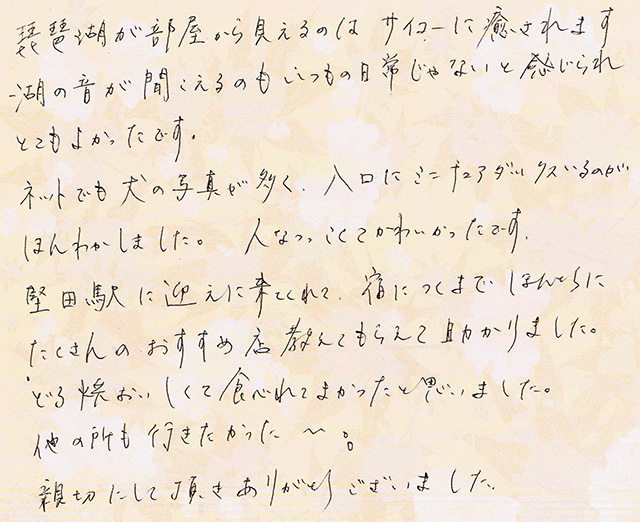 琵琶湖が部屋から見えるのは サイコーに癒されます
湖の音が聞こえるのも いつもの日常じゃないと感じられ
とてもよかったです。
ネットでも犬の写真が多く、入口にミニチュアダックスいるのが
ほんわかしました。 人なつっこくてかわいかったです。
堅田駅に迎えに来てくれて、宿につくまで ほんとうに
たくさんの おすすめ店 教えてもらえて 助かりました。
どろ焼おいしくて食べれてよかったと思いました。
他の所も行きたかった〜。
親切にして頂きありがとうございました。